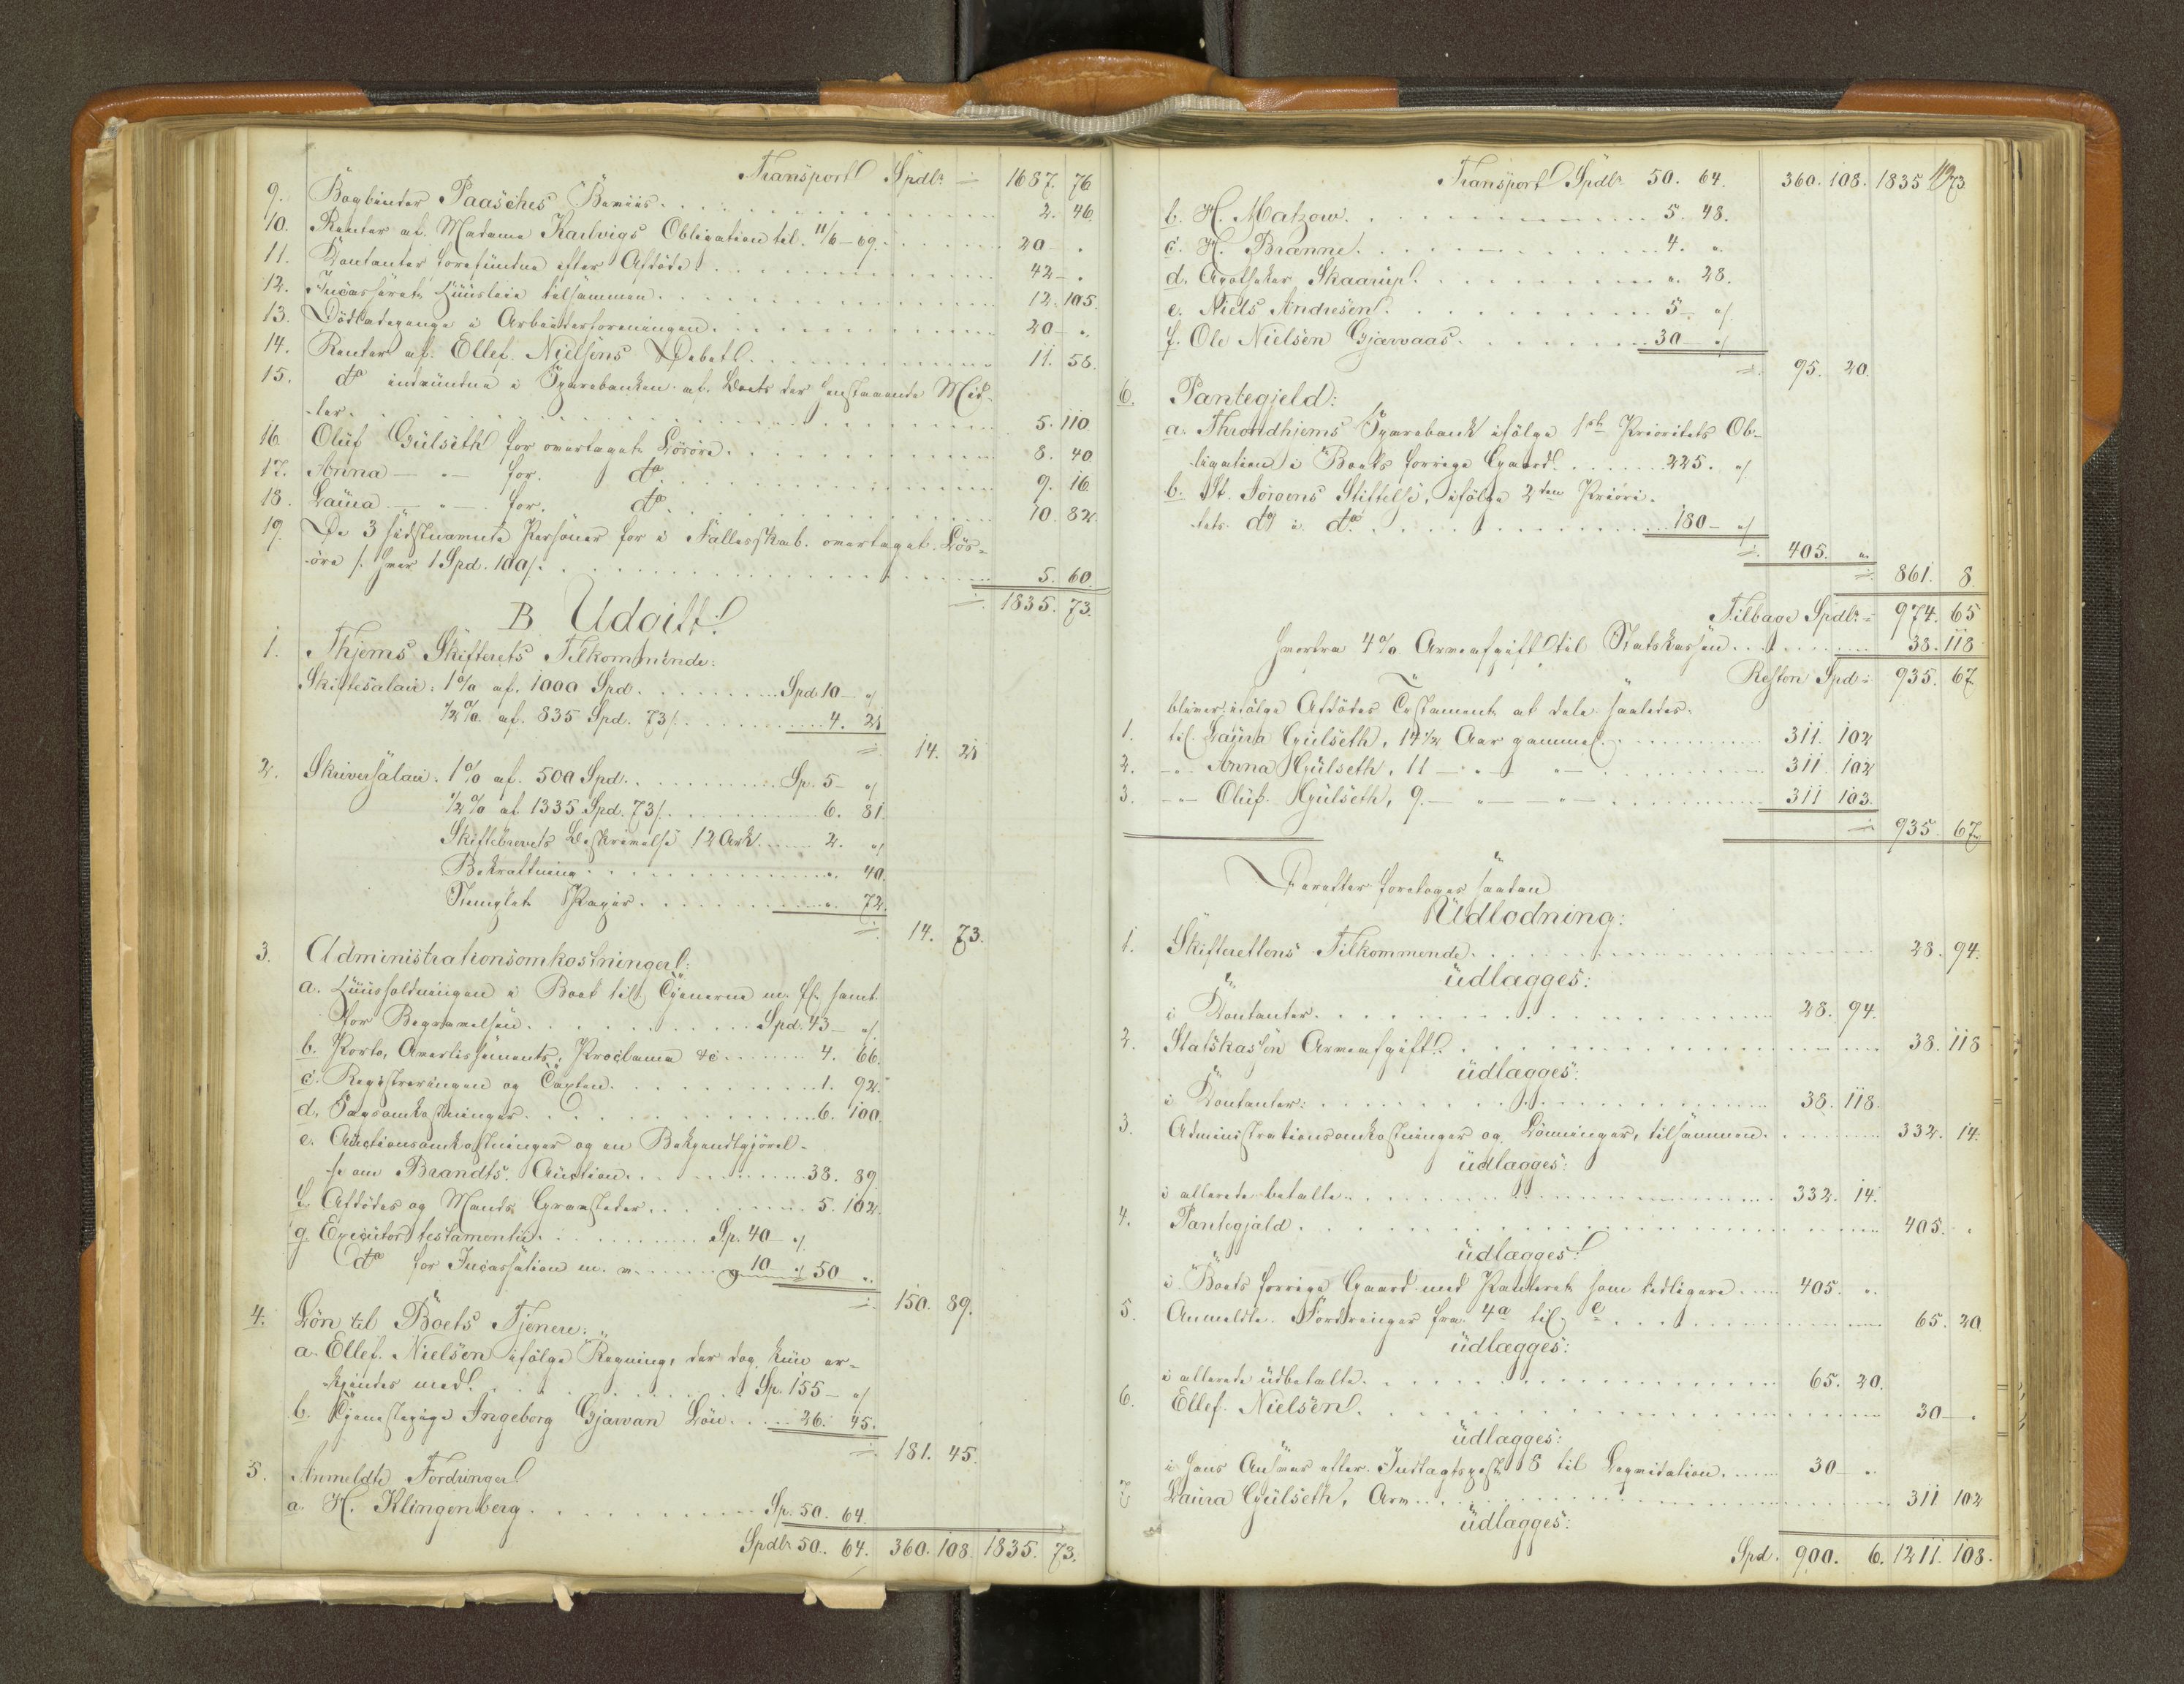 Transport Spdlr ÷ 1687. 76
9. Bogbinder Paasches Beviis. 2. 46
10. Renter af Madame Hartvigs Obligation til 11/6-69. 20-.
11. Kontanter forefundne efter Afdöde 42-.
12. Incasseret Huusleie tilsammen. 12. 105.
13. Dödladegange i Arbeiderforeningen. 20-.
14. Renter af Ellef Nielsens Debet. 11. 58.
15. do indvundne i Sparebanken af Boets der henstaaende Mid-
ler. 5. 110
16. Oluf Gülseth for overtaget Lösöre. 8. 40
17. Anna - " - for. do. 9. 16
18. Laura - " - for. do. 10. 82.
19. De 3 sidstnævnte Personer for i Fællesskab overtaget Lös-
öre /: hver 1 Spd. 100/:. 5. 60.
÷ 1835. 73.
B Udgift.
1. Thjems Skifterets Tilkommende:
Skiftesalair: 1% af. 1000 Spd. Spd 10- "/
1/2%. af. 835 Spd. 73/. 4. 21
÷ 14. 21
2. Skriversalair: 1% af. 500 Spd. Sp. 5- "/
1/2% af 1335 Spd. 73/. 6. 81.
Skiftebrevets Beskrivelse 12 Ark 2. "/
Bekræftning. ". 40.
Stemplet Papir. ". 72.
÷ 14. 73.
3. Administrationsomkostninger:
a. Huusholdningen i Boet til Tjenerne m. fl. samt
for Begravelsen. Spd. 43- "/
b. Porto, Avertissements, Proclama &c 4. 66.
c. Registreringen og Taxten. 1. 92.
d. Sagsomkostninger. 6. 100.
e. Auctionsomkostninger og en Bekjendtgjörel-
se om Brandts. Auction. 38. 89
f. Afdödes og Mands Gravsteder. 5. 102.
g. Executor testamenti. Sp. 40- "/
do for Incassation m. m. 10 - "/ 50 "
÷ 150. 89.
4. Lön til Boets Tjenere:
a. Ellef. Nielsen ifölge Regning, der dog kun er-
kjendes med. Sp. 155- "/
b. Tjenestepige Ingeborg Gjærvan Lön. 26. 45.
÷ 181. 45.
5. Anmeldte Fordringer
a. H. Klingenberg. Sp. 50. 64.
Spdlr 50. 64. 360. 108. 1835. 73.
Transport Spdlr 50. 64. 360. 108. 1835 73
b. H. Matzow. 5. 48.
c. H. Brænne. 4. ".
d. Apotheker Skaarup. ". 28.
e. Niels Andresen. 5- "/
f. Ole Nielsen Gjærvaas. 30- "/
÷ 95. 20.
6. Pantegjeld:
a. Throndhjems Sparebank ifölge 1ste Prioritets Ob-
ligation i Boets forrige Gaard. 225. "/
b. St. Jörgens Stiftelse, ifölge 2den Priori-
tets do i do. 180- "/
÷ 405. ".
÷ 861. 8
Tilbage Spdlr ÷ 974. 65
hvorfra 4% Arveafgift til Statskassen. 38. 118
Resten Spd ÷ 935. 67
bliver ifölge Afdödes Testament at dele saaledes:
1. til Laura Gülseth, 14 1/2 Aar gammel. 311. 102
2. -"- Anna Gülseth, 11 - " - " - 311. 102
3. -"- Oluf. Gülseth, 9. - " - " - 311 103.
÷ 935. 67
Derefter foretages saadan
Udlodning:
1. Skifterettens Tilkommende. 28. 94.
udlægges:
i Kontanter. 28. 94.
2. Statskassen Arveafgift. 38. 118
udlægges:
i Kontanter: 38. 118.
3. Administrationsomkostninger og Lönninger, tilsammen. 332. 14.
udlægges:
i allerede betalte. 332. 14.
4. Pantegjæld. 405. .
udlægges:
i Boets forrige Gaard med Panteret som tidligere. 405. ".
5. Anmeldte Fordringer fra 4a til e. 65. 20
udlægges:
i allerede udbetalte. 65. 20.
6. Ellef. Nielsen. 30-.
udlægges:
i hans Ansvar efter Indtægtspost 8 til Liqvidation. 30 ".
7 Laura Gülseth, Arv. 311 102
udlægges:
Spd. 900. 6. 1211. 108.